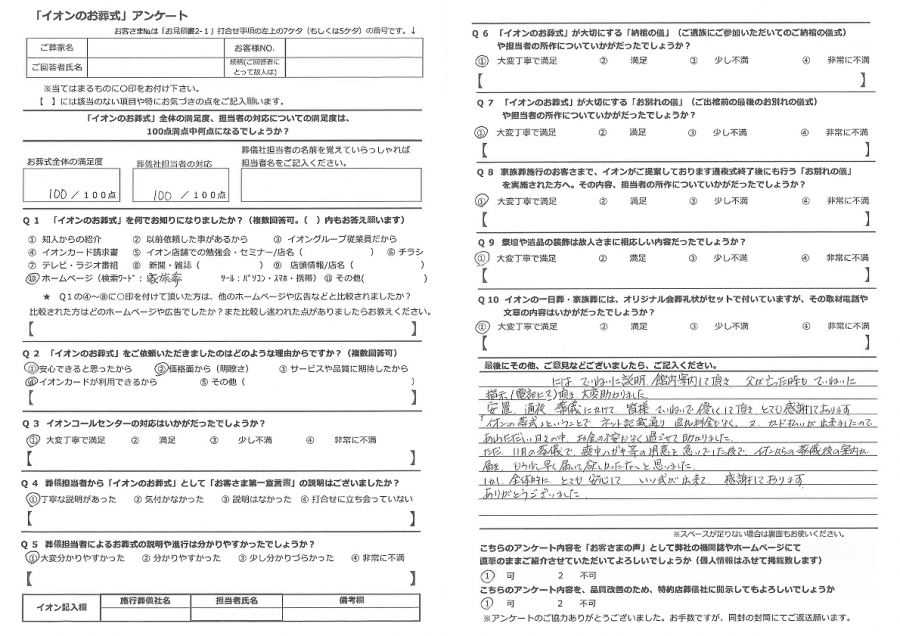 「イオンのお葬式」アンケート
お客さま№は「お見積書2-1」打合せ事項の左上の7ケタ（もしくは5ケタ）の番号です。↓
ご葬家名 お客様NO.
ご回答者氏名 続柄(ご回答者にとって故人は)
※当てはまるものに○印をお付け下さい。
【 】には該当のない項目や特にお気づきの点をご記入願います。
「イオンのお葬式」全体の満足度、担当者の対応についての満足度は、
100点満点中何点になるでしょうか？
お葬式全体の満足度 葬儀社担当者の対応 葬儀社担当者の名前を覚えていらっしゃれば
担当者名をご記入ください。
100 / 100点 100 / 100点
Q 1 「イオンのお葬式」を何でお知りになりましたか？（複数回答可。（ ）内もお答え願います）
① 知人からの紹介 ② 以前依頼した事があるから ③ イオングループ従業員だから
④ イオンカード請求書 ⑤ イオン店舗での勉強会・セミナー/店名（ ） ⑥ チラシ
⑦ テレビ・ラジオ番組 ⑧ 新聞・雑誌（ ） ⑨ 店頭情報/店名（ ）
⑩ ホームページ（検索ﾜｰﾄﾞ：家族葬 ﾂｰﾙ：ﾊﾟｿｺﾝ・ｽﾏﾎ・携帯） ⑪ その他( )
★ Q１の④～⑧に○印を付けて頂いた方は、他のホームページや広告などと比較されましたか？
比較された方はどのホームページや広告でしたか？また比較し迷われた点がありましたらお教えください。
【 】
Q 2 「イオンのお葬式」をご依頼いただきましたのはどのような理由からですか？（複数回答可）
①安心できると思ったから ②価格面から（明瞭さ） ③ サービスや品質に期待したから
④イオンカードが利用できるから ⑤ その他（ ）
【 】
Q 3 イオンコールセンターの対応はいかがだったでしょうか？
① 大変丁寧で満足 ② 満足 ③ 少し不満 ④ 非常に不満
【 】
Q 4 葬儀担当者から「イオンのお葬式」として「お客さま第一宣言書」の説明はございましたか？
①丁寧な説明があった ② 気付かなかった ③ 説明はなかった ④ 打合せに立ち会っていない
【 】
Q 5 葬儀担当者によるお葬式の説明や進行は分かりやすかったでしょうか？
①大変分かりやすかった ② 分かりやすかった ③ 少し分かりづらかった ④ 非常に不満
【 】
イオン記入欄 施行葬儀社名 担当者氏名 備考欄
Q 6 「イオンのお葬式」が大切にする「納棺の儀」（ご遺族にご参加いただいてのご納棺の儀式）
や担当者の所作についていかがだったでしょうか？
① 大変丁寧で満足 ② 満足 ③ 少し不満 ④ 非常に不満
【 】
Q 7 「イオンのお葬式」が大切にする「お別れの儀」（ご出棺前の最後のお別れの儀式）
や担当者の所作についていかがだったでしょうか？
① 大変丁寧で満足 ② 満足 ③ 少し不満 ④ 非常に不満
【 】
Q 8 家族葬施行のお客さまで、イオンがご提案しております通夜式終了後にも行う「お別れの儀」
を実施された方へ。その内容、担当者の所作についていかがだったでしょうか？
① 大変丁寧で満足 ② 満足 ③ 少し不満 ④ 非常に不満
【 】
Q 9 祭壇や遺品の装飾は故人さまに相応しい内容だったでしょうか？
① 大変丁寧で満足 ② 満足 ③ 少し不満 ④ 非常に不満
【 】
Q10 イオンの一日葬・家族葬には、オリジナル会葬礼状がセットで付いていますが、その取材電話や
文章の内容はいかがだったでしょうか？
① 大変丁寧で満足 ② 満足 ③ 少し不満 ④ 非常に不満
【 】
最後にその他、ご意見などございましたら、ご記入ください。
にはていねいに説明、館内案内して頂き 父が亡った時もていねいに
指示（電話にて）頂き大変助かりました。
安置、通夜 葬儀にかけて 皆様ていねいで優しくして頂きとても感謝しております
イオンの葬式ということで ネット記載通り 追加料金もなく、又 カード払いが出来ましたので
あわただしい日々の中、お金の不安がなく過ごせて助かりました。
ただ、11月の葬儀で、喪中ハガキ等の用意を急いでいた後で、イオンからの葬儀後の案内が
届き、もう少し早く届いて欲しかったなーと思いました。
しかし、全体的に とても安心して いい式が出来て、感謝しております
ありがとうございました
※スペースが足りない場合は裏面もお使いください。
こちらのアンケート内容を「お客さまの声」として弊社の機関誌やホームページにて
直筆のままご紹介させていただいてよろしいでしょうか（個人情報はふせて掲載致します）
1 可 2 不可
こちらのアンケート内容を、品質改善のため、特約店葬儀社に開示してもよろしいでしょうか
1 可 2 不可
※アンケートのご協力ありがとうございました。お手数ですが、同封の封筒にてご返送願います。